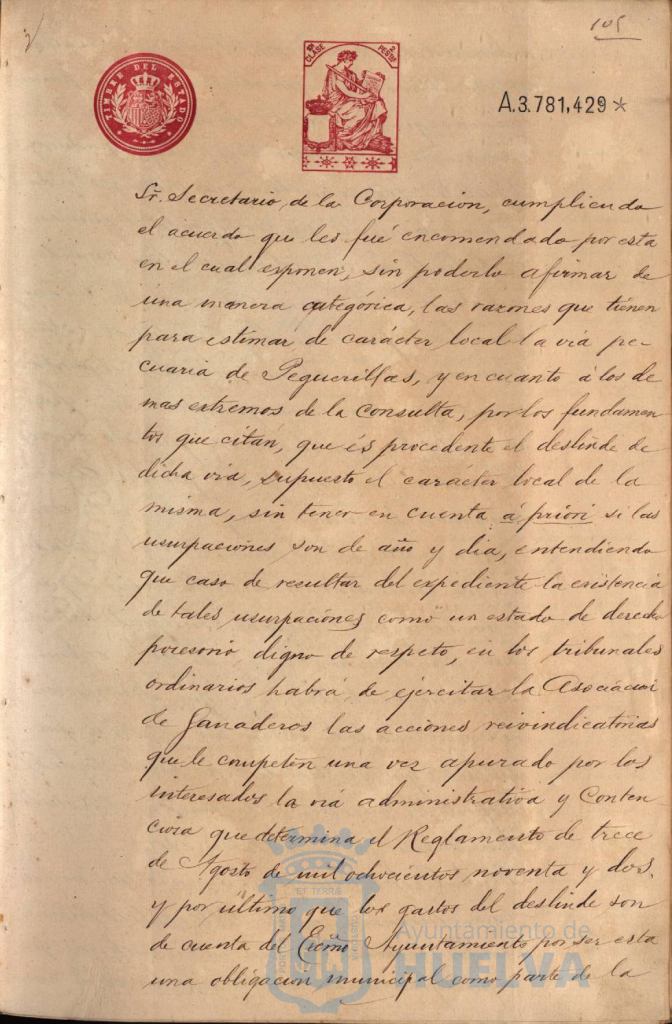 105
TIMBRE DEL ESTADO
CLASE
2 PESTAS
A.3.781,429*
Sr. Secretario, de la Corporación, cumpliendo
el acuerdo que les fué encomendado por esta
en el cual exponen, sin poderlo afirmar de
una manera categórica, las razones que tienen
para estimar de carácter local la via pe-
cuaria de Peguerillas, y en cuanto á los de
mas extremos de la consulta, por los fundamen
tos que citan, que és procedente el deslinde de
dicha via, supuesto el carácter local de la
misma, sin tener en cuenta á priori si las
usurpaciones son de año y dia, entendiendo
que caso de resultar del expediente la existencia
de tales usurpaciones como un estado de derecho
posesorio digno de respeto, en los tribunales
ordinarios habrá de ejercitar la Asociacion
de Ganaderos las acciones reivindicatorias
que le competen una vez apurado por los
interesados la via administrativa y Conten
ciosa que determina el Reglamento de trece
de Agosto de mil ochocientos noventa y dos,
y por último que los gastos del deslinde son
de cuenta del Excmo Ayuntamiento por ser esta
una obligacion municipal como parte de la
Ayuntamiento de
HUELVA